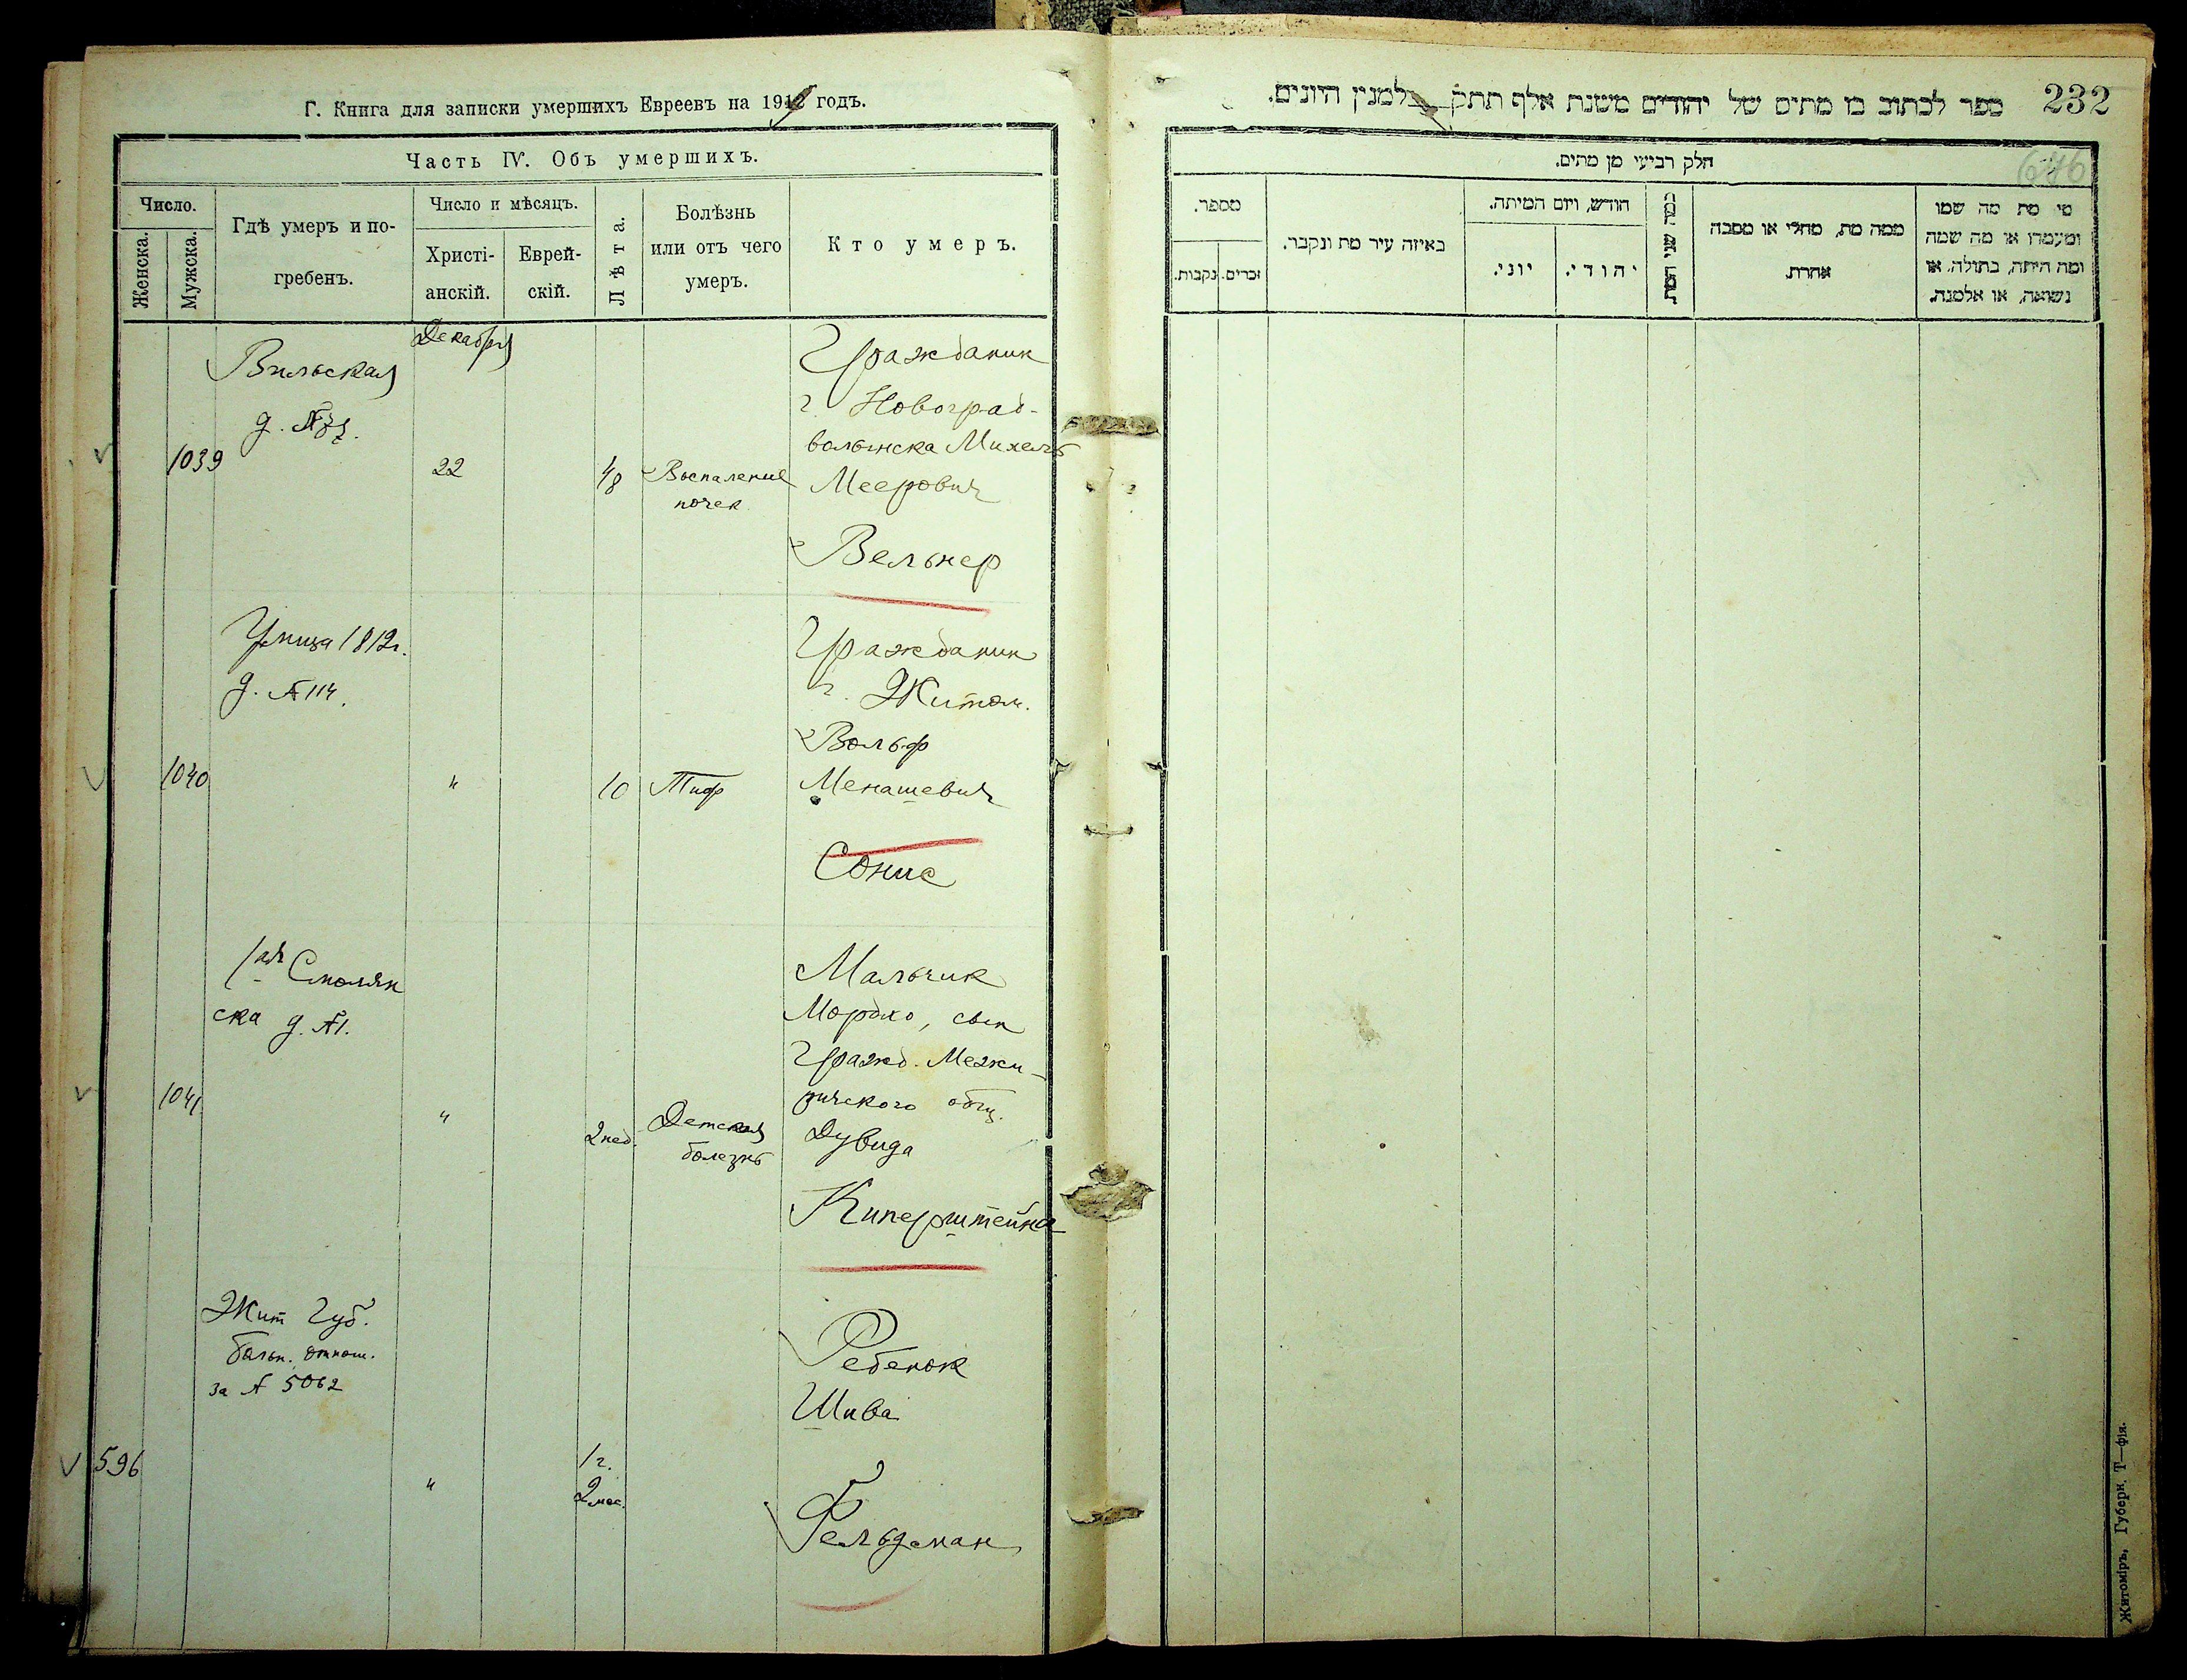 Г. Книга для записки умершихъ Евреевъ на 191 годъ.
Часть IV. Объ умершихъ.
Число.
Женска.
Мужска.
Гдѣ умеръ и по-
гребенъ.
Число и мѣсяцъ.
Христі-
анскій.
Еврей-
скій.
Лѣта.
Болѣзнь
или отъ чего
умеръ.
Кто умеръ.
Декабря
Вильская
д. №
1039
22
48
Воспаление
почек
Гражданин
г. Новоград-
волынска Михель
Меерович
Вельнер
Улица 1812 г.
д. № 114.
1040
"
10
Тиф
Гражданин
г. Житом.
Вольф
Менашевич
Сонис
1ая Смолян
ска д. №1.
1041
"
2 нед.
Детская
болезнь
Мальчик
Мордко, сын
Гражд. Межи-
ричского общ.
Дувида
Куперштейна
Жит Губ.
больн. отнош.
за № 5062
596
"
1 г.
2 мес.
Ребенок
Шива
Фельдман
232
ספר לכתוב בו מתים של יהודים משנת אלף תתק למנין היונים.
646
חלק רביעי מן מתים.
מספר.
נקבות.
זכרים.
באיזה עיר מת ונקבר.
חודש, ויום המיתה.
יוני.
יהודי.
כמה שני המת.
ממה מת, מחלי או מסבה
אחרת.
מי מת מה שמו
ומעמדו או מה שמה
ומה היתה, בתולה, או
נשואה, או אלמנה.
Житоміръ, Губерн. Т—фія.